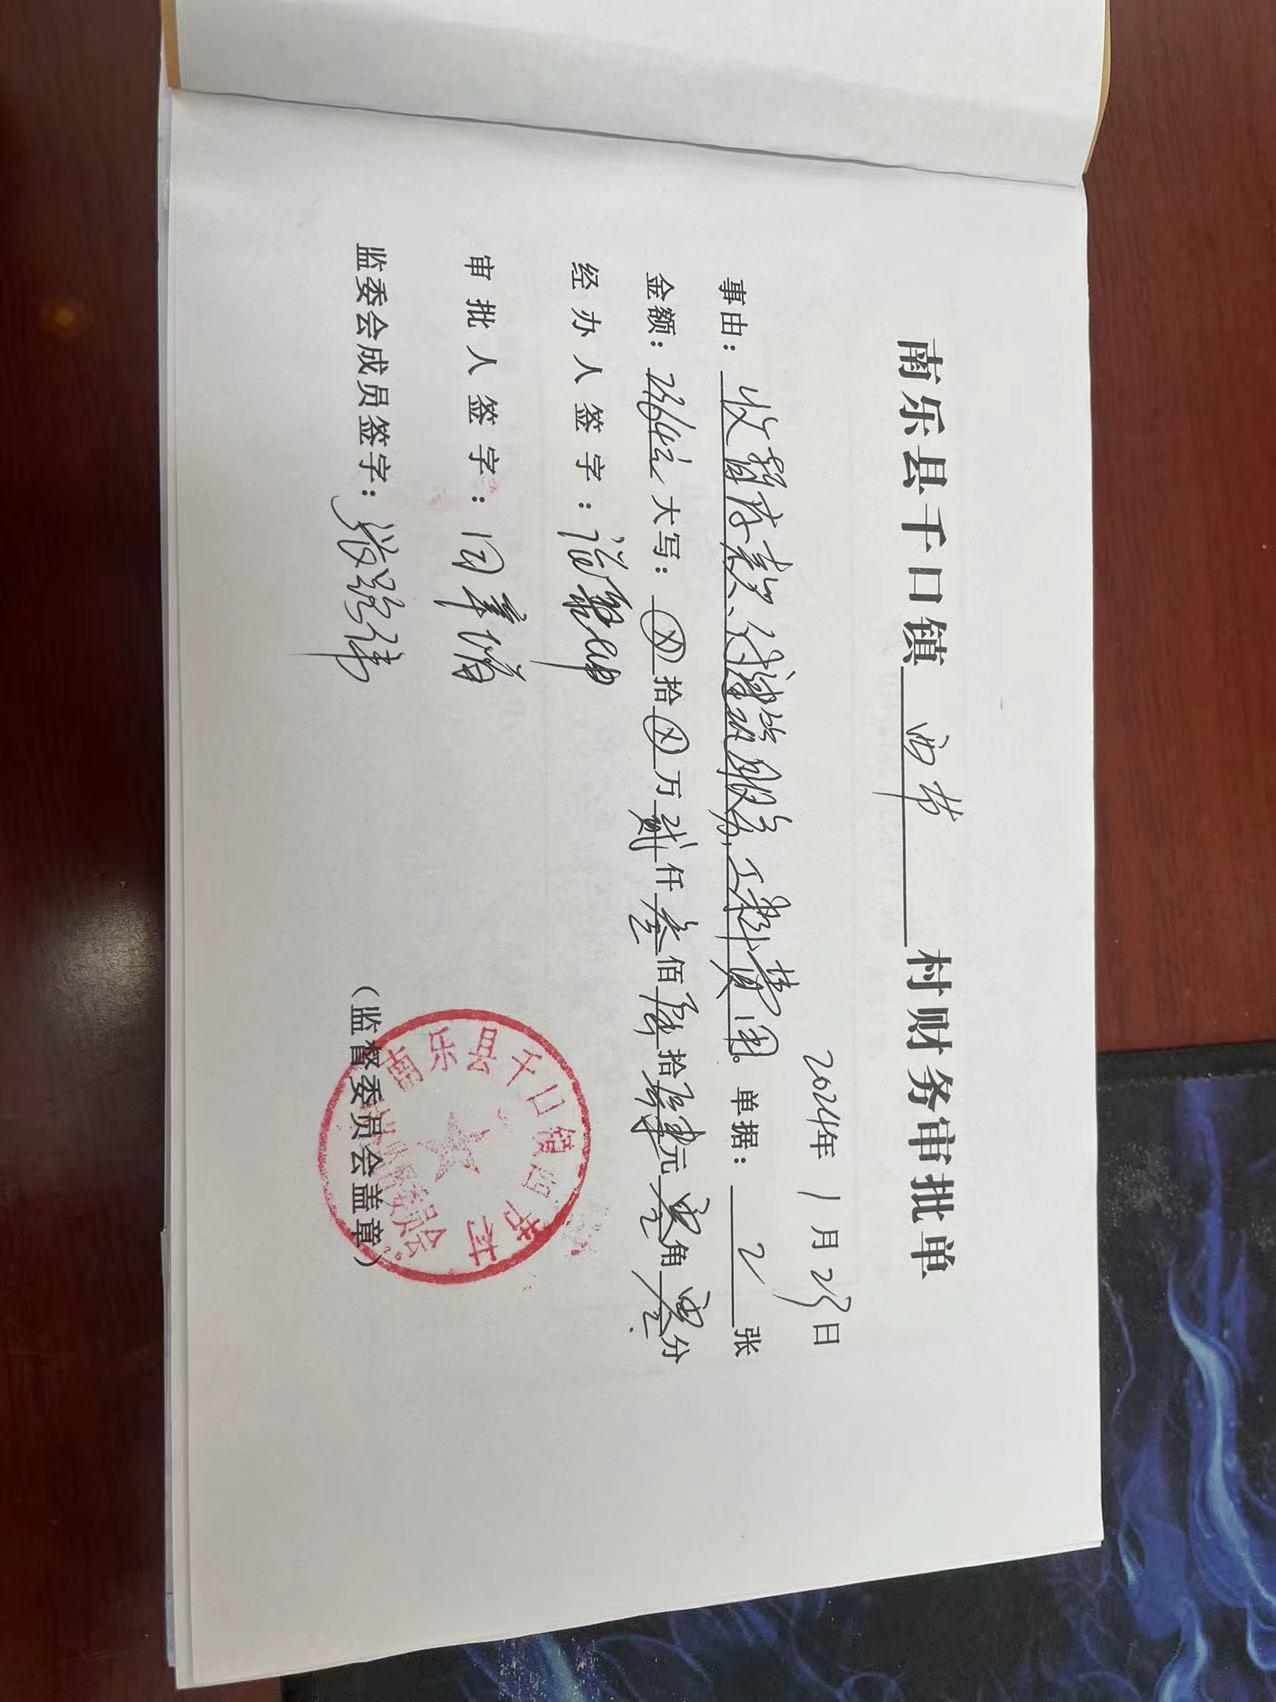 南乐县千口镇 西节 村财务审批单
2024年 1月23日
事由：收暂存款、付建筑服务,工程费用。单据：2张
金额： 大写：⊗拾⊗万贰仟叁佰陆拾 元零角零分
经办人签字：
审批人签字：
监委会成员签字：
（监督委员会盖章）
南乐县千口镇西节村